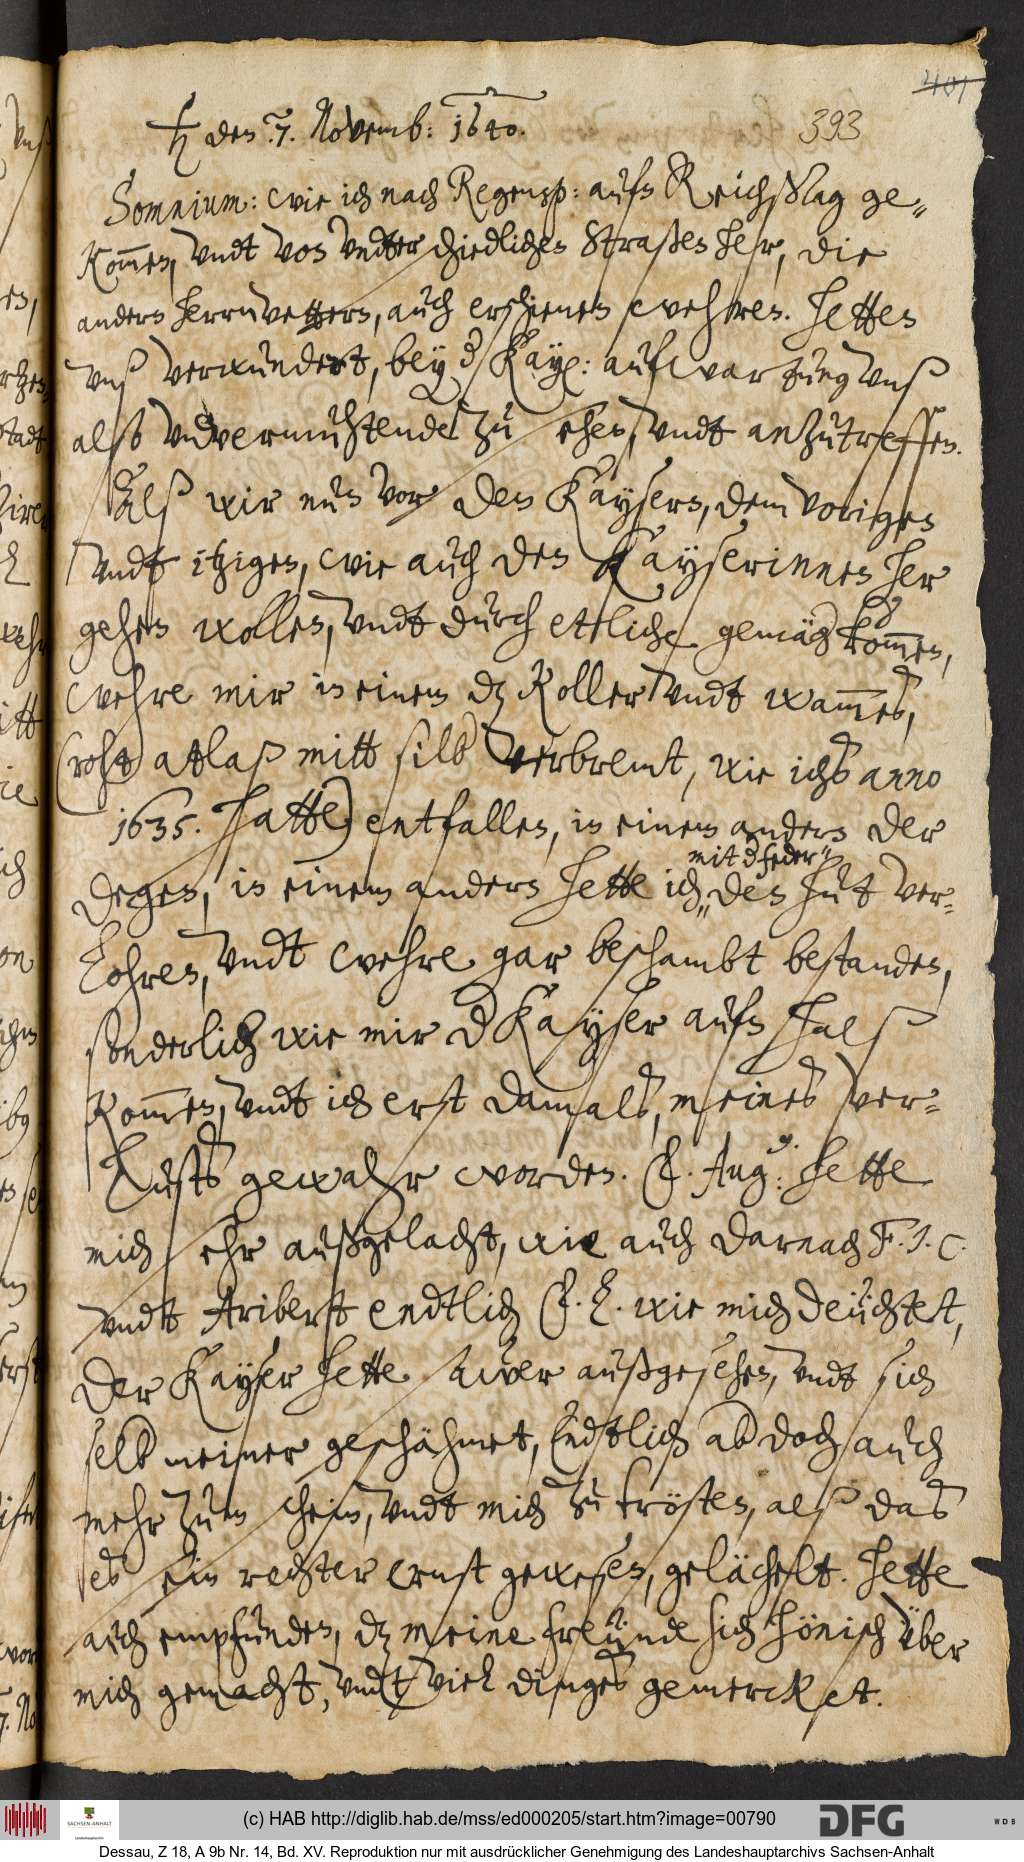 401
393
♄ den 7. Novemb: 1640.
Somnium: wie ich nach Regensp: aufn Reichßtag ge„
kom̄en, vndt von vndterschiedlichen Straßen her, die
andern herrnvettern, auch erschienen wehren. hetten
vnß verwundert, bey d Kay: aufwartung vnß
alß vnvermuhtende zu sehen, vndt anzutreffen.
Alß wir nun vor den Kaysern, dem vorigen
vndt itzigen, wie auch den Kayserinnen her
gehen wollen, vndt durch etliche gemäch kom̄en,
wehre mir in einem dz Koller vndt wam̄es,
(roht atlaß mitt silb verbremt, wie ichs anno
1635. hatte) entfallen, in einem andern der
mit d feder„
degen, in einem andern hette ich„ den huet ver-
lohren, vndt wehre gar beschambt bestanden,
sonderlich wie mir d Kayser aufn halß
kom̄en, vndt ich erst damals, meines ver-
lusts gewahr worden. F. Aug9: hette
mich sehr außgelacht, wie auch darnach F. J. C.
vndt Aribert endtlich F. L. wie mich deüchtet,
der Kayser hette sawer außgesehen, vndt sich
selb meiner geschähmet, Endtlich ab doch auch
mehr zum schein, vndt mich zu trösten, alß das
es ein rechter ernst gewesen, gelächelt. hette
auch empfunden, dz meine freünde sich hönisch über
mich gemacht, vndt viel dinges gemercket.
(c) HAB http://diglib.hab.de/mss/ed000205/start.htm?image=00790
SACHSEN-ANHALT
Landeshauptarchiv
DFG
WDB
Dessau, Z 18, A 9b Nr. 14, Bd. XV. Reproduktion nur mit ausdrücklicher Genehmigung des Landeshauptarchivs Sachsen-Anhalt